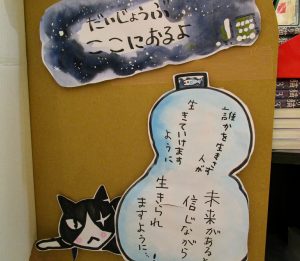 だいじょうぶ
ここにおるよ
誰かを生きさず
人が
生きていけます
ように、
未来があると
信じながら
生きられ
ますように…!